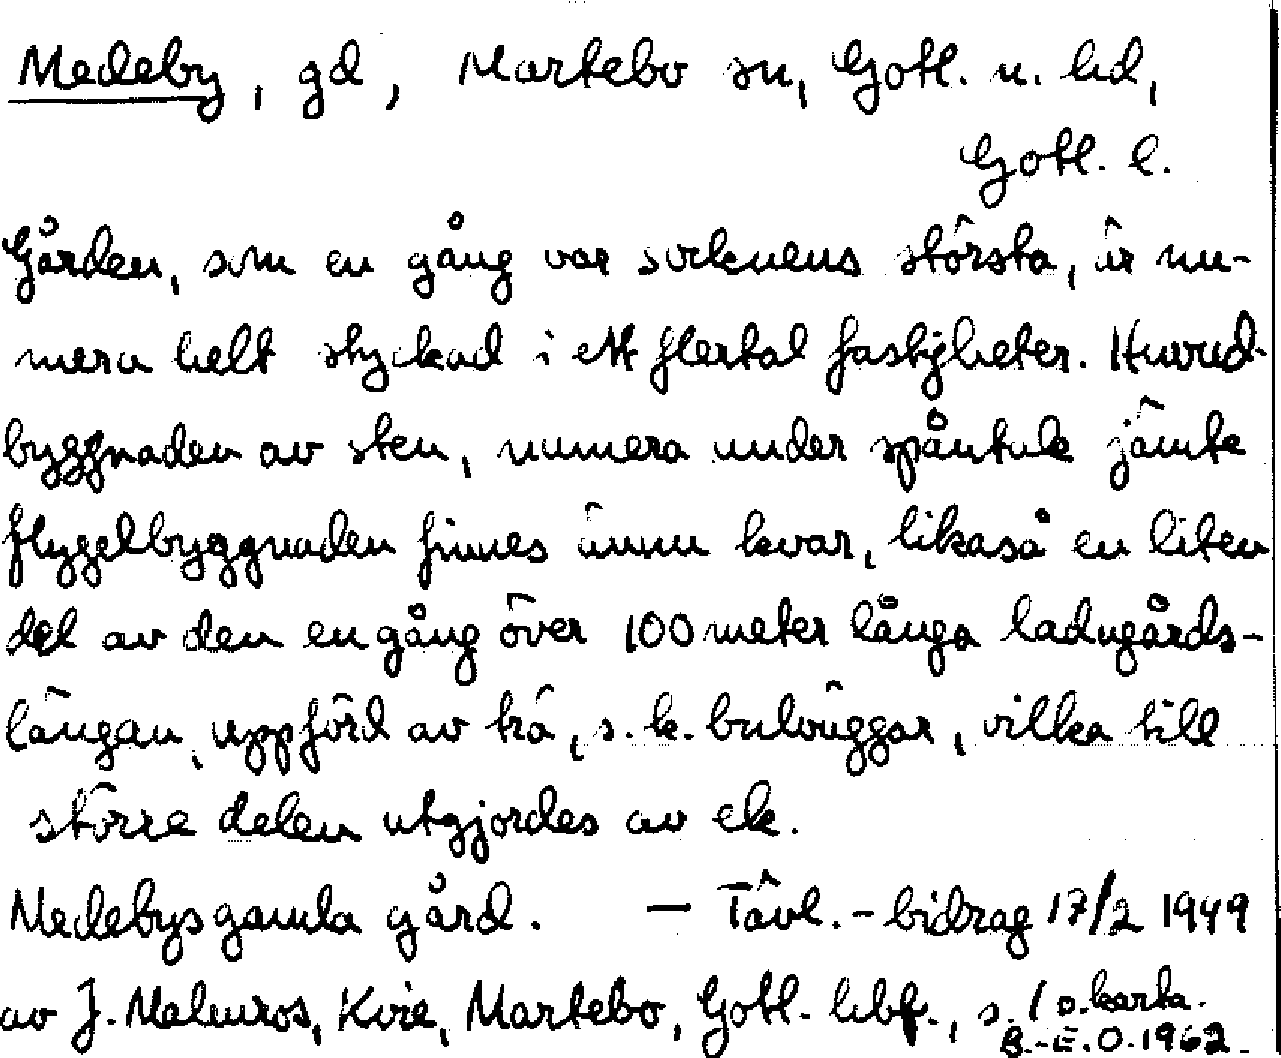 Medeby, gd, Martebo sn, Gotl. n. hd,
Gotl. l.
Gården, som en gång var socknens största, är nu-
mera helt styckad i ett flertal fastigheter. Huvud-
byggnaden av sten, numera under spåntak jämte
flygelbyggnaden finnes ännu kvar, likaså en liten
del av den en gång över 100 meter långa ladugårds-
längan, uppförd av trä, s.k. bulväggar, vilka till
större delen utgjordes av ek.
Medebys gamla gård. — Tävl.-bidrag 17/2 1949
av J. Malmros, Kvie, Martebo, Gotl. hbf., s. 1 o. karta.
B.-E.O. 1962